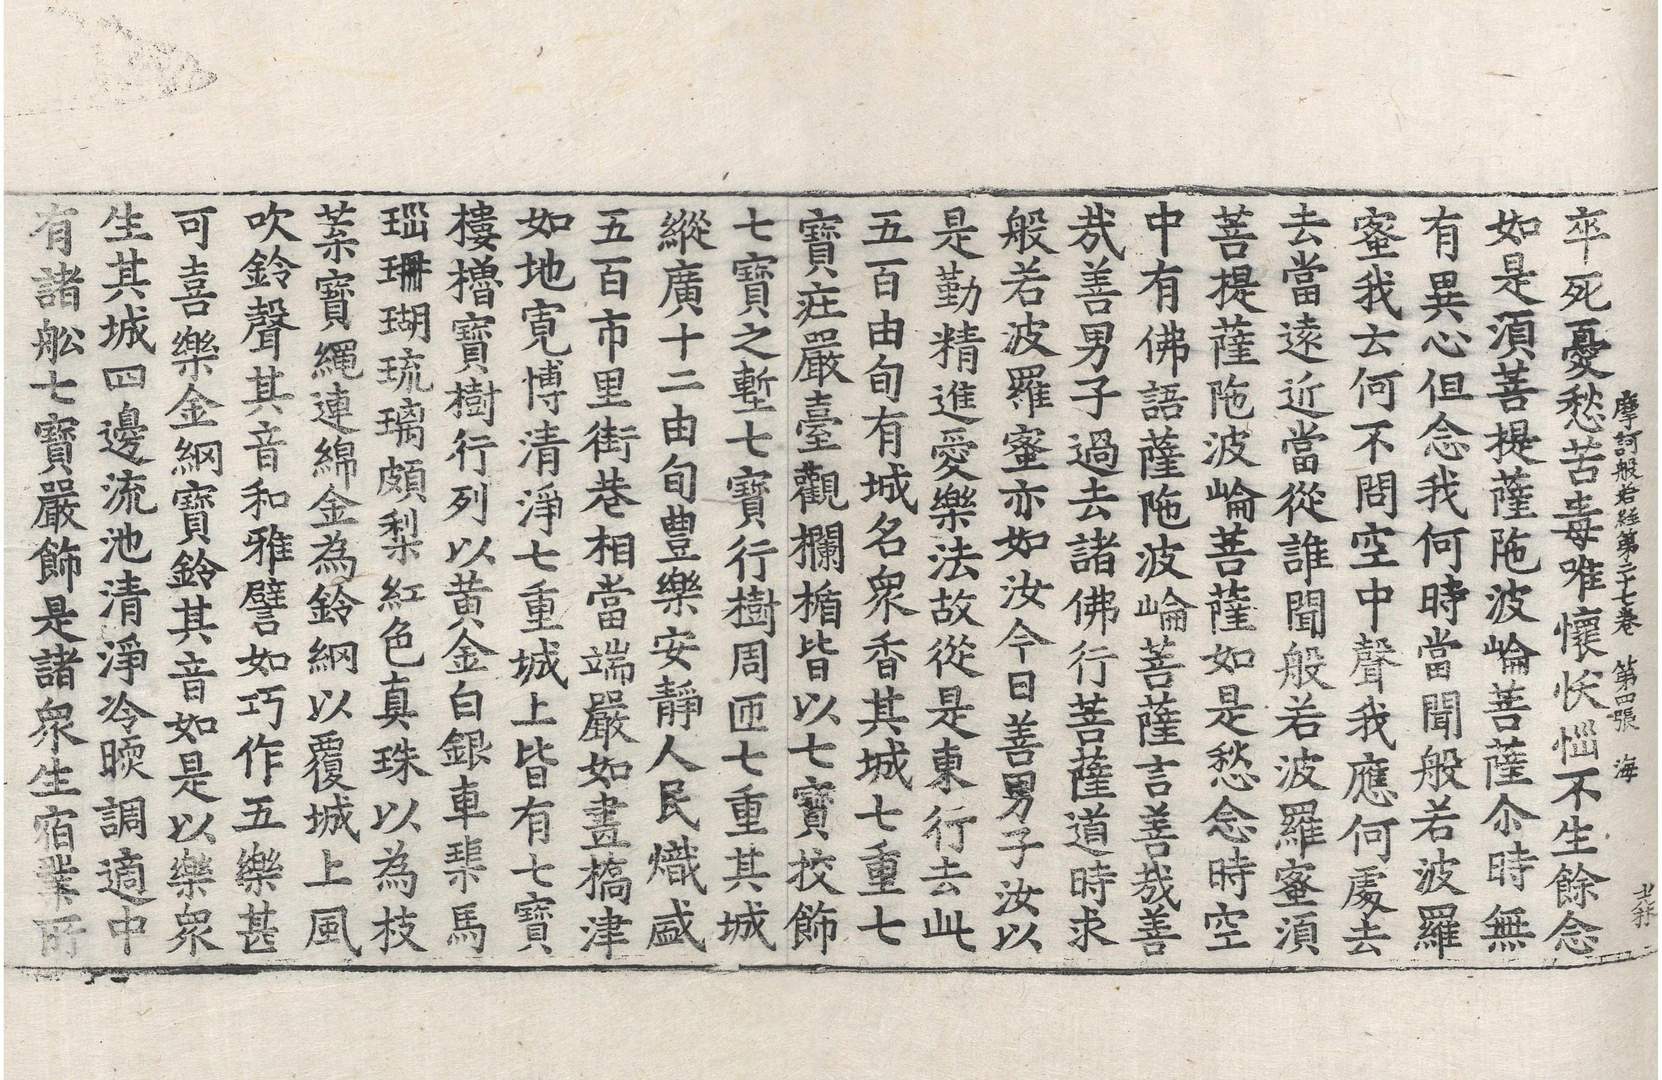 摩訶般若經第二十七卷　第四張　海
卒死憂愁苦毒唯懷悵惱不生餘念
如是須菩提薩陁波崘菩薩尒時無
有異心但念我何時當聞般若波羅
蜜我云何不問空中聲我應何處去
去當遠近當從誰聞般若波羅蜜須
菩提薩陁波崘菩薩如是愁念時空
中有佛語薩陁波崘菩薩言善哉善
哉善男子過去諸佛行菩薩道時求
般若波羅蜜亦如汝今日善男子汝以
是勤精進愛樂法故從是東行去此
五百由旬有城名衆香其城七重七
寶莊嚴臺觀欄楯皆以七寶挍飾
七寶之塹七寶行樹周匝七重其城
縱廣十二由旬豊樂安靜人民熾盛
五百市里街巷相當端嚴如畫橋津
如地寬博清淨七重城上皆有七寶
樓櫓寶樹行列以黄金白銀車璖馬
瑙珊瑚琉璃頗梨紅色真珠以為枝
葉寶繩連綿金為鈴網以覆城上風
吹鈴聲其音和雅譬如巧作五樂甚
可喜樂金網寶鈴其音如是以樂衆
生其城四邊流池清淨冷暖調適中
有諸舩七寶嚴飾是諸衆生宿業所